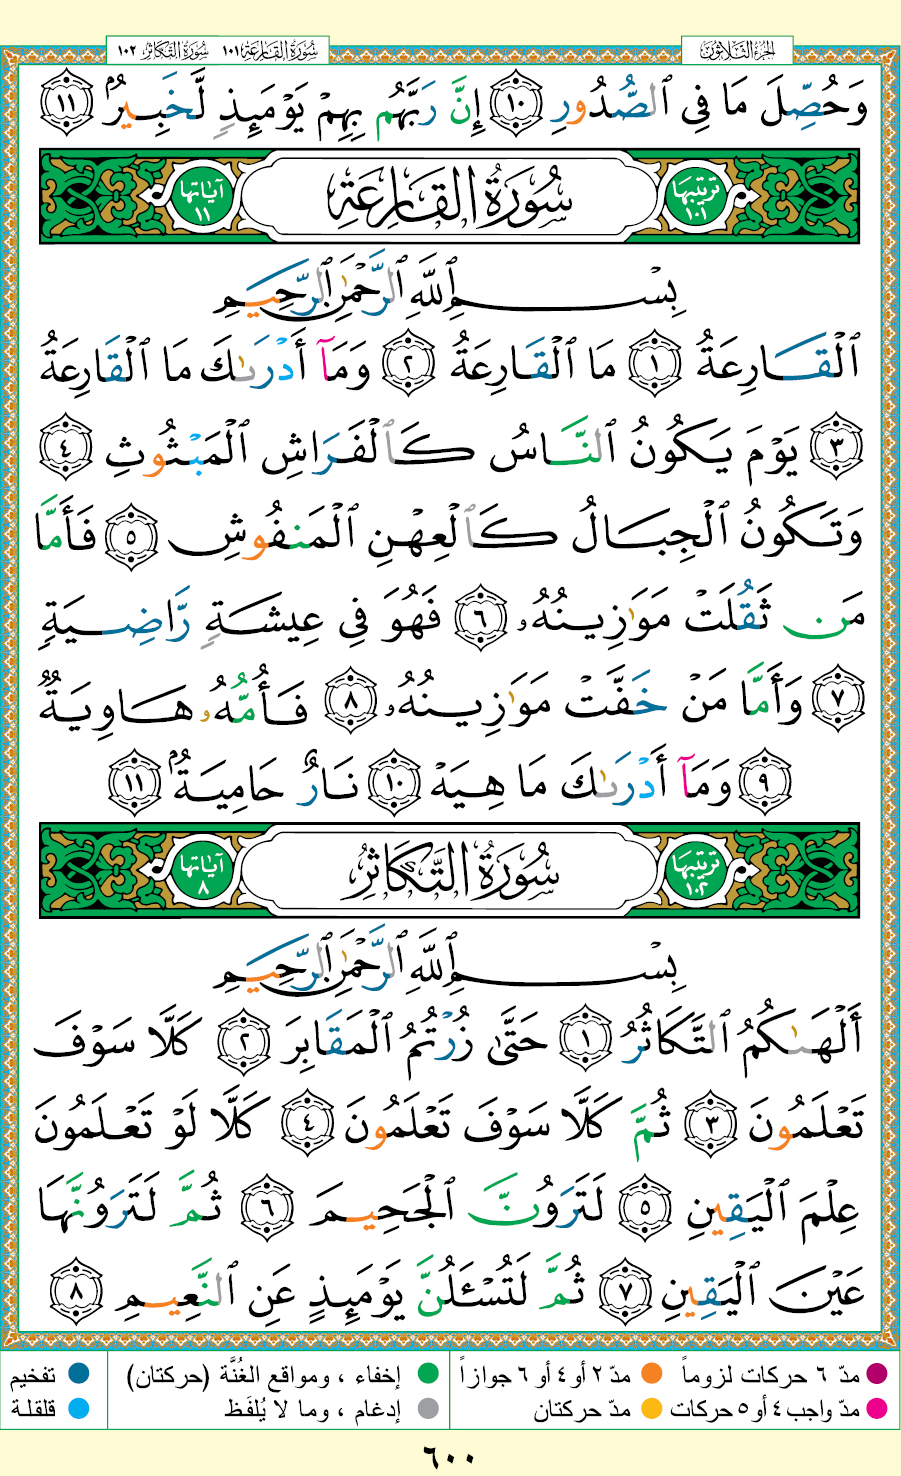 الجزء الثلاثون
سورة القارعة ١٠١ سورة التكاثر ١٠٢
وَحُصِّلَ مَا فِى ٱلصُّدُورِ ١٠ إِنَّ رَبَّهُم بِهِمْ يَوْمَئِذٍ لَّخَبِيرٌۢ ١١
ترتيبها ١٠١ سُورَةُ القَارِعَةِ آياتها ١١
بِسْمِ ٱللَّهِ ٱلرَّحْمَٰنِ ٱلرَّحِيمِ
ٱلْقَارِعَةُ ١ مَا ٱلْقَارِعَةُ ٢ وَمَآ أَدْرَىٰكَ مَا ٱلْقَارِعَةُ
٣ يَوْمَ يَكُونُ ٱلنَّاسُ كَٱلْفَرَاشِ ٱلْمَبْثُوثِ ٤
وَتَكُونُ ٱلْجِبَالُ كَٱلْعِهْنِ ٱلْمَنفُوشِ ٥ فَأَمَّا
مَن ثَقُلَتْ مَوَٰزِينُهُۥ ٦ فَهُوَ فِى عِيشَةٍ رَّاضِيَةٍ
٧ وَأَمَّا مَنْ خَفَّتْ مَوَٰزِينُهُۥ ٨ فَأُمُّهُۥ هَاوِيَةٌ
٩ وَمَآ أَدْرَىٰكَ مَا هِيَهْ ١٠ نَارٌ حَامِيَةٌۢ ١١
ترتيبها ١٠٢ سُورَةُ التَّكَاثُرِ آياتها ٨
بِسْمِ ٱللَّهِ ٱلرَّحْمَٰنِ ٱلرَّحِيمِ
أَلْهَىٰكُمُ ٱلتَّكَاثُرُ ١ حَتَّىٰ زُرْتُمُ ٱلْمَقَابِرَ ٢ كَلَّا سَوْفَ
تَعْلَمُونَ ٣ ثُمَّ كَلَّا سَوْفَ تَعْلَمُونَ ٤ كَلَّا لَوْ تَعْلَمُونَ
عِلْمَ ٱلْيَقِينِ ٥ لَتَرَوُنَّ ٱلْجَحِيمَ ٦ ثُمَّ لَتَرَوُنَّهَا
عَيْنَ ٱلْيَقِينِ ٧ ثُمَّ لَتُسْـَٔلُنَّ يَوْمَئِذٍ عَنِ ٱلنَّعِيمِ ٨
مدّ ٦ حركات لزوماً مدّ ٢ أو ٤ أو ٦ جوازاً إخفاء ، ومواقع الغُنَّة (حركتان) تفخيم
مدّ واجب ٤ أو ٥ حركات مدّ حركتان إدغام ، وما لا يُلفَظ قلقلة
٦٠٠